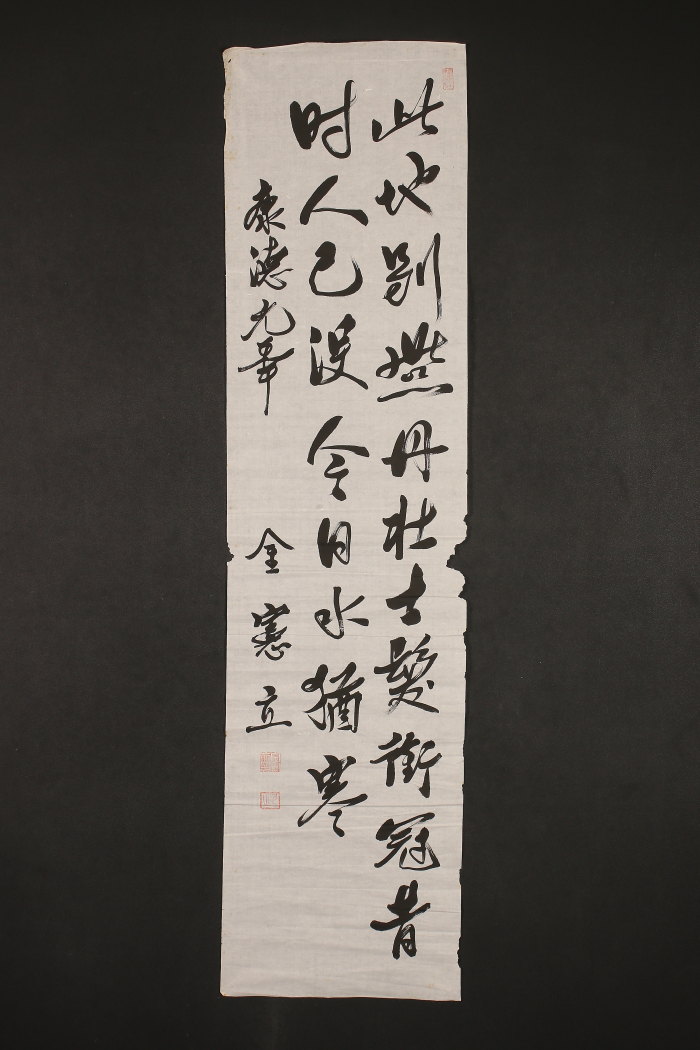 此地别燕丹壮士髮衝冠昔
时人已没今日水猶寒
康德九年 金憲立